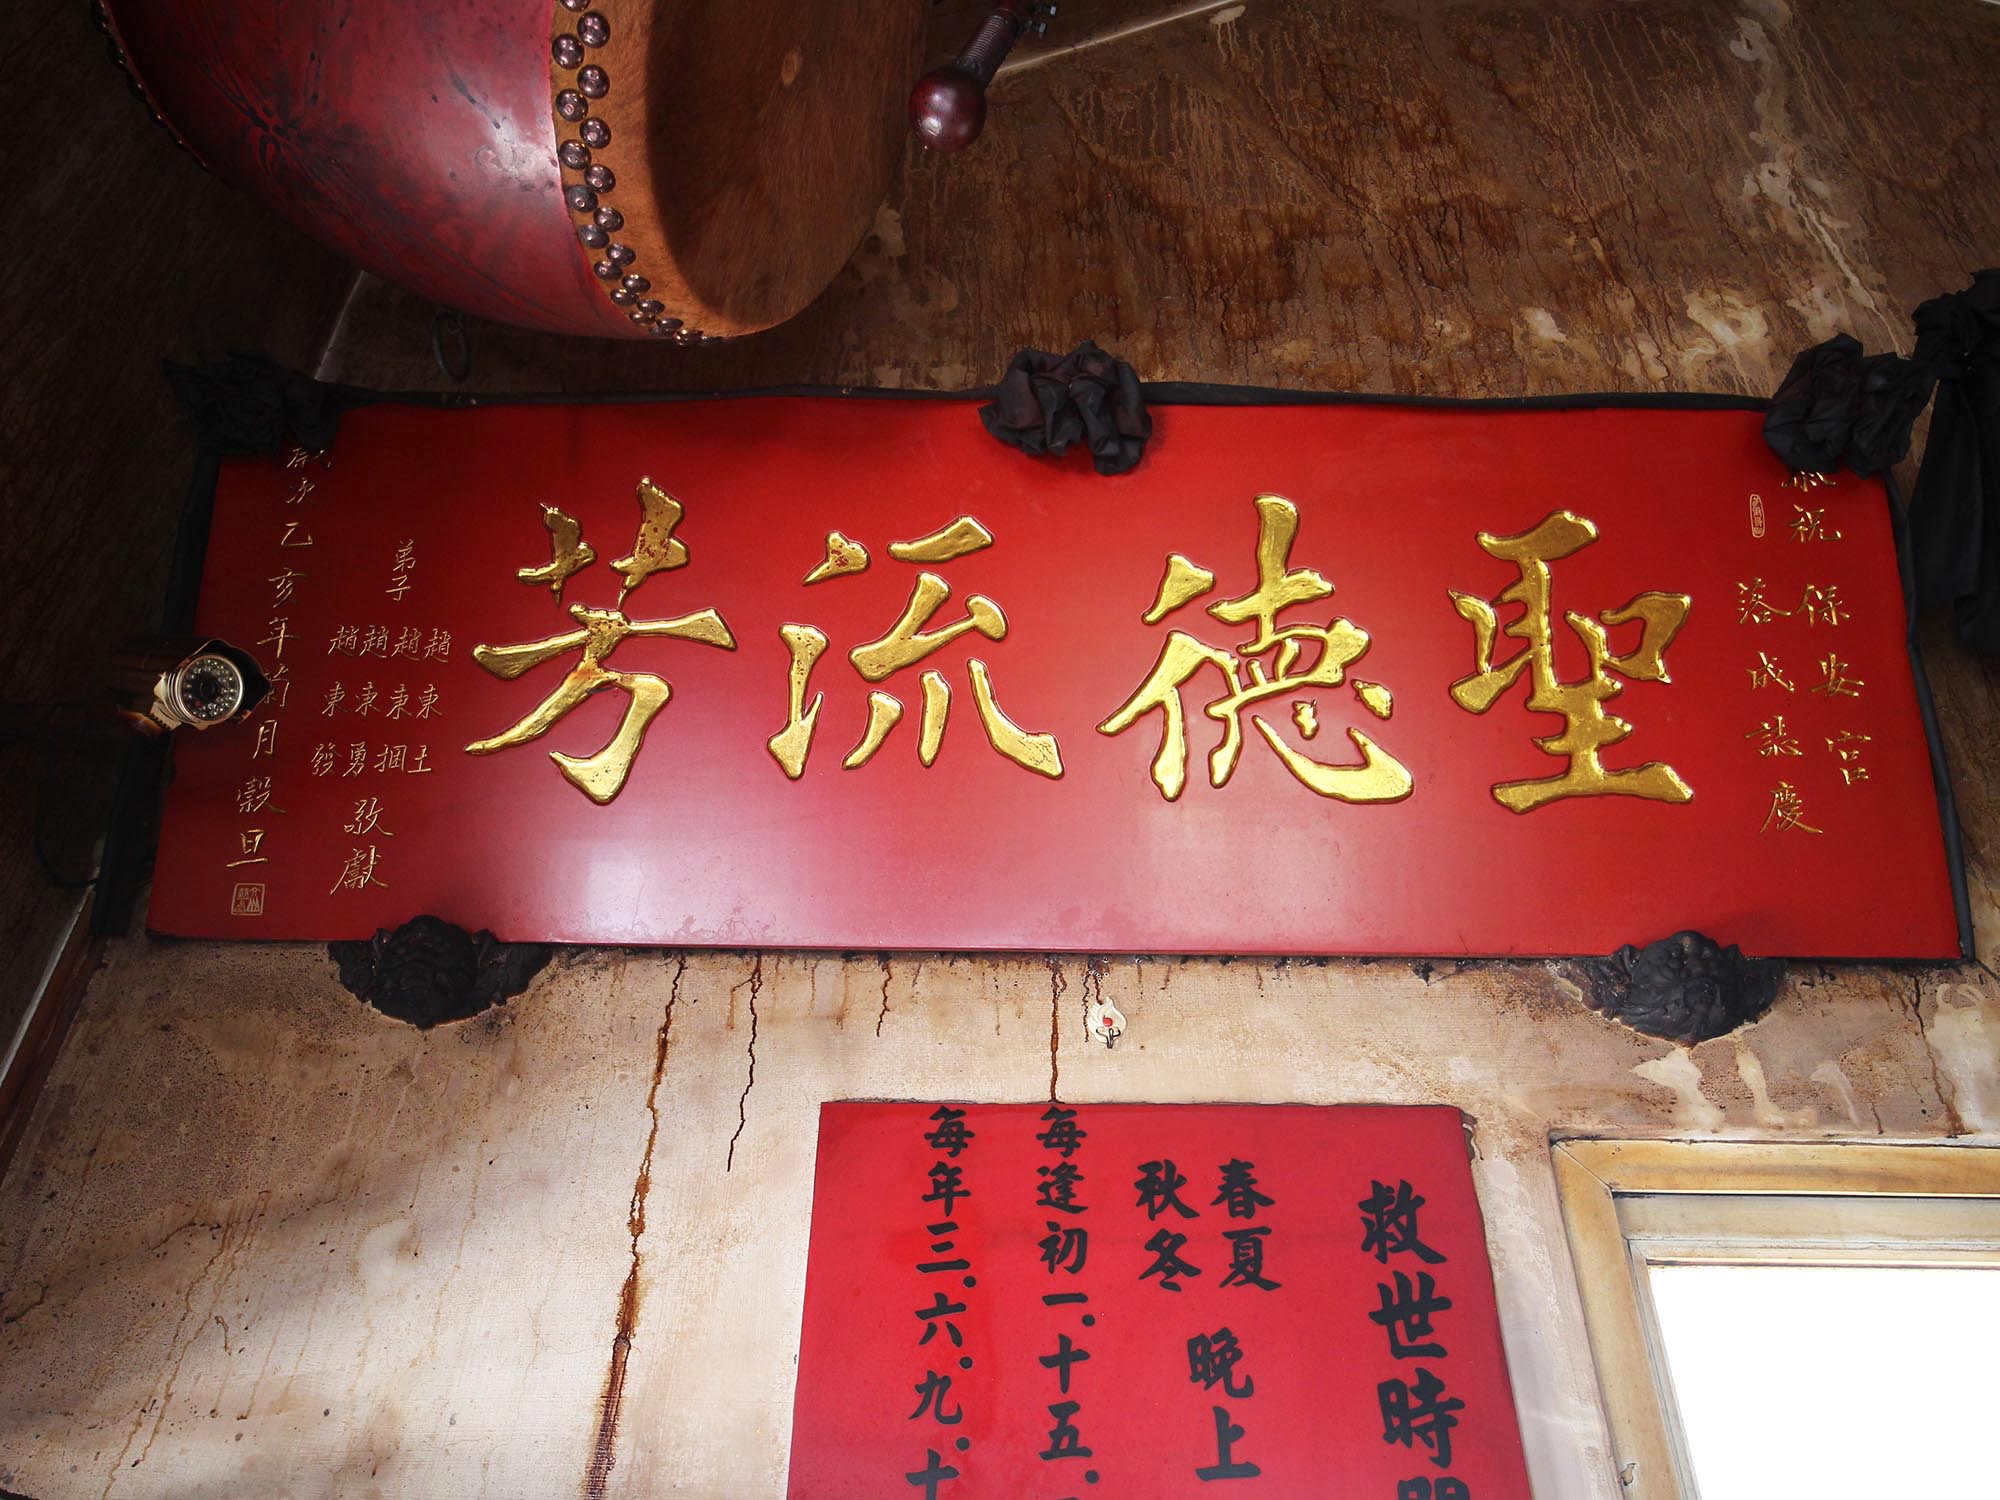 祝保安宮
落成誌慶
聖德流芳
弟子
趙東王
趙東捆
趙東勇
趙東發
敬獻
歲次乙亥年菊月穀旦
救世時間
春夏
秋冬
晚上
每逢初一.十五.
每年三.六.九.十